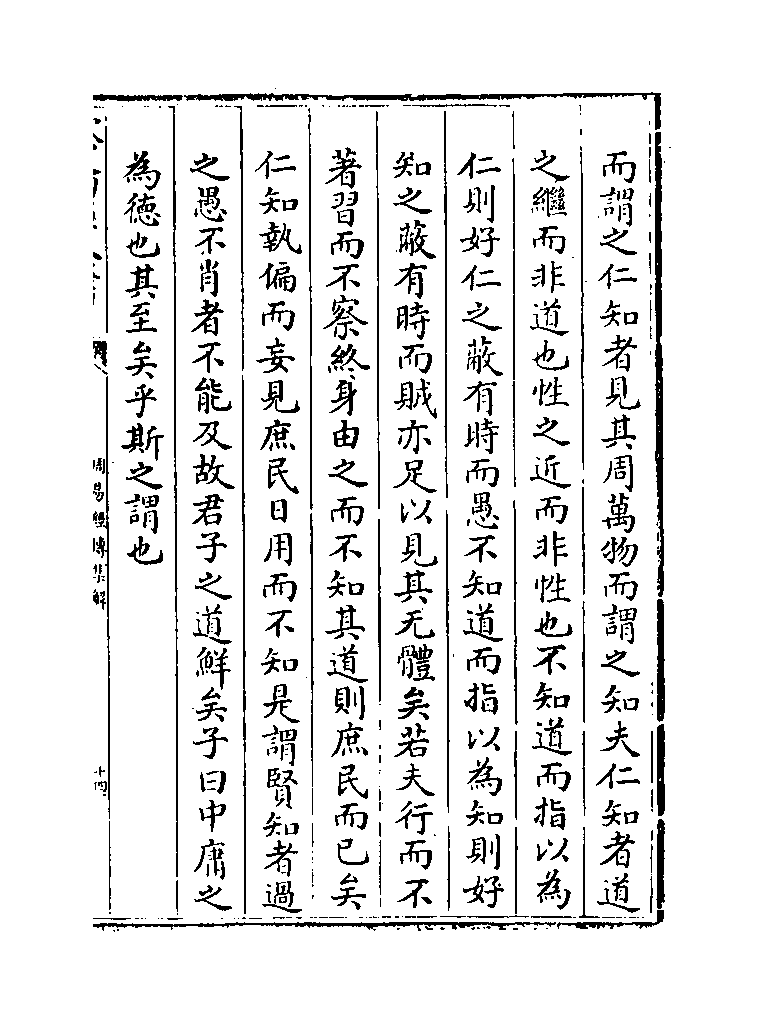 而謂之仁知者見其周萬物而謂之知夫仁知者道
之繼而非道也性之近而非性也不知道而指以為
仁則好仁之蔽有時而愚不知道而指以為知則好
知之蔽有時而賊亦足以見其无體矣若夫行而不
著習而不察終身由之而不知其道則庶民而已矣
仁知執偏而妄見庶民日用而不知是謂賢知者過
之愚不肖者不能及故君子之道鮮矣子曰中庸之
為德也其至矣乎斯之謂也
周易經傳集解
十四